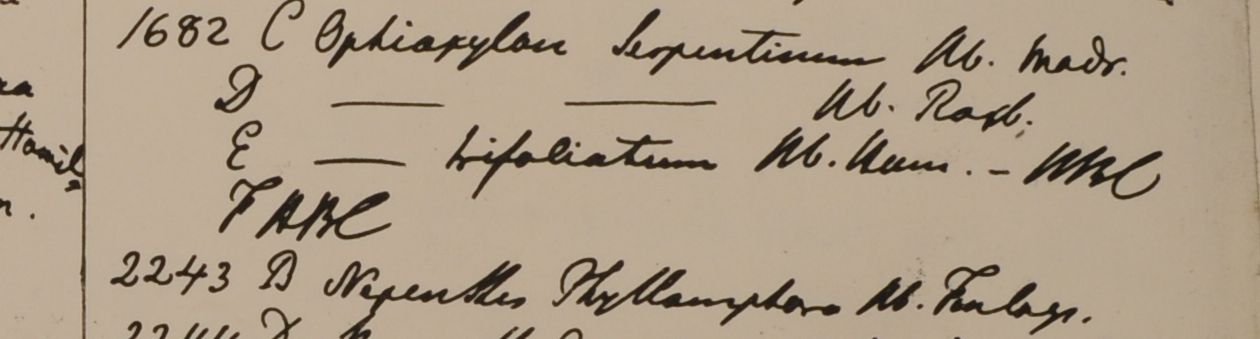 Hamil
1682 C Ophioxylon Serpentinum Hb. Madr.
D —— —— Hb. Roxb.
E —— trifoliatum Hb. Ham. - HBC
F HBC
2243 B Nepenthes Phyllamphora Hb. Finlays.